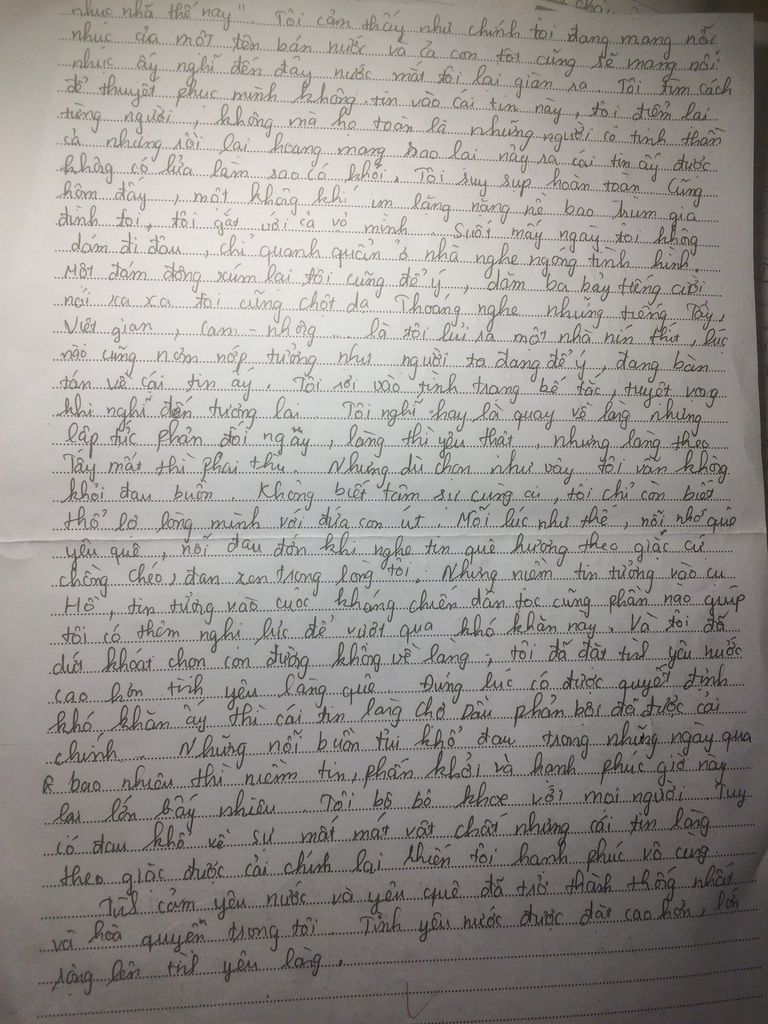 nhục nhã thế này" Tôi cảm thấy như chính tôi đang mang nỗi
nhục của một tên bán nước và cả con tôi cũng sẽ mang nỗi
nhục ấy nghĩ đến đây nước mắt tôi lại giàn ra. Tôi tìm cách
để thuyết phục mình không tin vào cái tin này, tôi điểm lại
từng người, không mà họ toàn là những người có tinh thần
cả nhưng rồi lại hoang mang sao lại nảy ra cái tin ấy được
không có lửa làm sao có khói. Tôi suy sụp hoàn toàn. Cũng
hôm đấy, một không khí im lặng nặng nề bao trùm gia
đình tôi, tôi gắt với cả vợ mình. Suốt mấy ngày tôi không
dám đi đâu, chỉ quanh quẩn ở nhà nghe ngóng tình hình.
Một đám đông xúm lại tôi cũng để ý, dăm ba bảy tiếng cười
nói xa xa tôi cũng chột dạ Thoáng nghe những tiếng Tây,
Việt gian, cam - nhông ... là tôi lủi ra một nhà nín thít, lúc
nào cũng nơm nớp tưởng như người ta đang để ý, đang bàn
tán về cái tin ấy. Tôi rơi vào tình trạng bế tắc, tuyệt vọng
khi nghĩ đến tương lai Tôi nghĩ hay là quay về làng nhưng
lập tức phản đối ngay, làng thì yêu thật, nhưng làng theo
Tây mất thì phải thù. Nhưng dù chọn như vậy tôi vẫn không
khỏi đau buồn. Không biết tâm sự cùng ai, tôi chỉ còn biết
thổ lộ lòng mình với đứa con út. Mỗi lúc như thế, nỗi nhớ quê
yêu quê, nỗi đau đớn khi nghe tin quê hương theo giặc cứ
chồng chéo, đan xen trong lòng tôi. Nhưng niềm tin tưởng vào cụ
Hồ, tin tưởng vào cuộc kháng chiến dân tộc cũng phần nào giúp
tôi có thêm nghị lực để vượt qua khó khăn này. Và tôi đã
dứt khoát chọn con đường không về làng, tôi đã đặt tìh yêu nước
cao hơn tình yêu làng quê. Đúng lúc có được quyết định
khó khăn ấy thì cái tin làng chợ Dầu phản bội đã được cải
chính. Những nỗi buồn tủi khổ đau trong những ngày qua
bao nhiêu thì niềm tin, phấn khởi và hạnh phúc giờ này
lại lớn bấy nhiêu Tôi bô bô khoe với mọi người. Tuy
có đau khổ về sự mất mát vật chất nhưng cái tin làng
theo giặc được cải chính lại khiến tôi hạnh phúc vô cùng
Tìh cảm yêu nước và yêu quê đã trở thành thống nhất
và hoà quyện trong tôi. Tình yêu nước được đặt cao hơn, lớn
rộng lên tìh yêu làng.